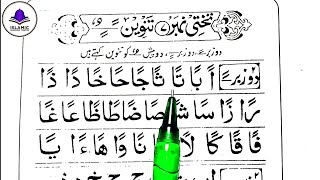 ISLAMIC
تختی نمبر ۷ تنوین ـً ـٍ ـٌ
دو زبر ـً دو زیر ـٍ دو پیش ـٌ کو تنوین کہتے ہیں
دو زبر ـً اً بًا تًا ثًا جًا حًا خًا دًا ذًا
رًا زًا سًا شًا صًا ضًا طًا ظًا عًا غًا
فًا قًا کًا لًا نًا وًا ھًا ءًا یًا